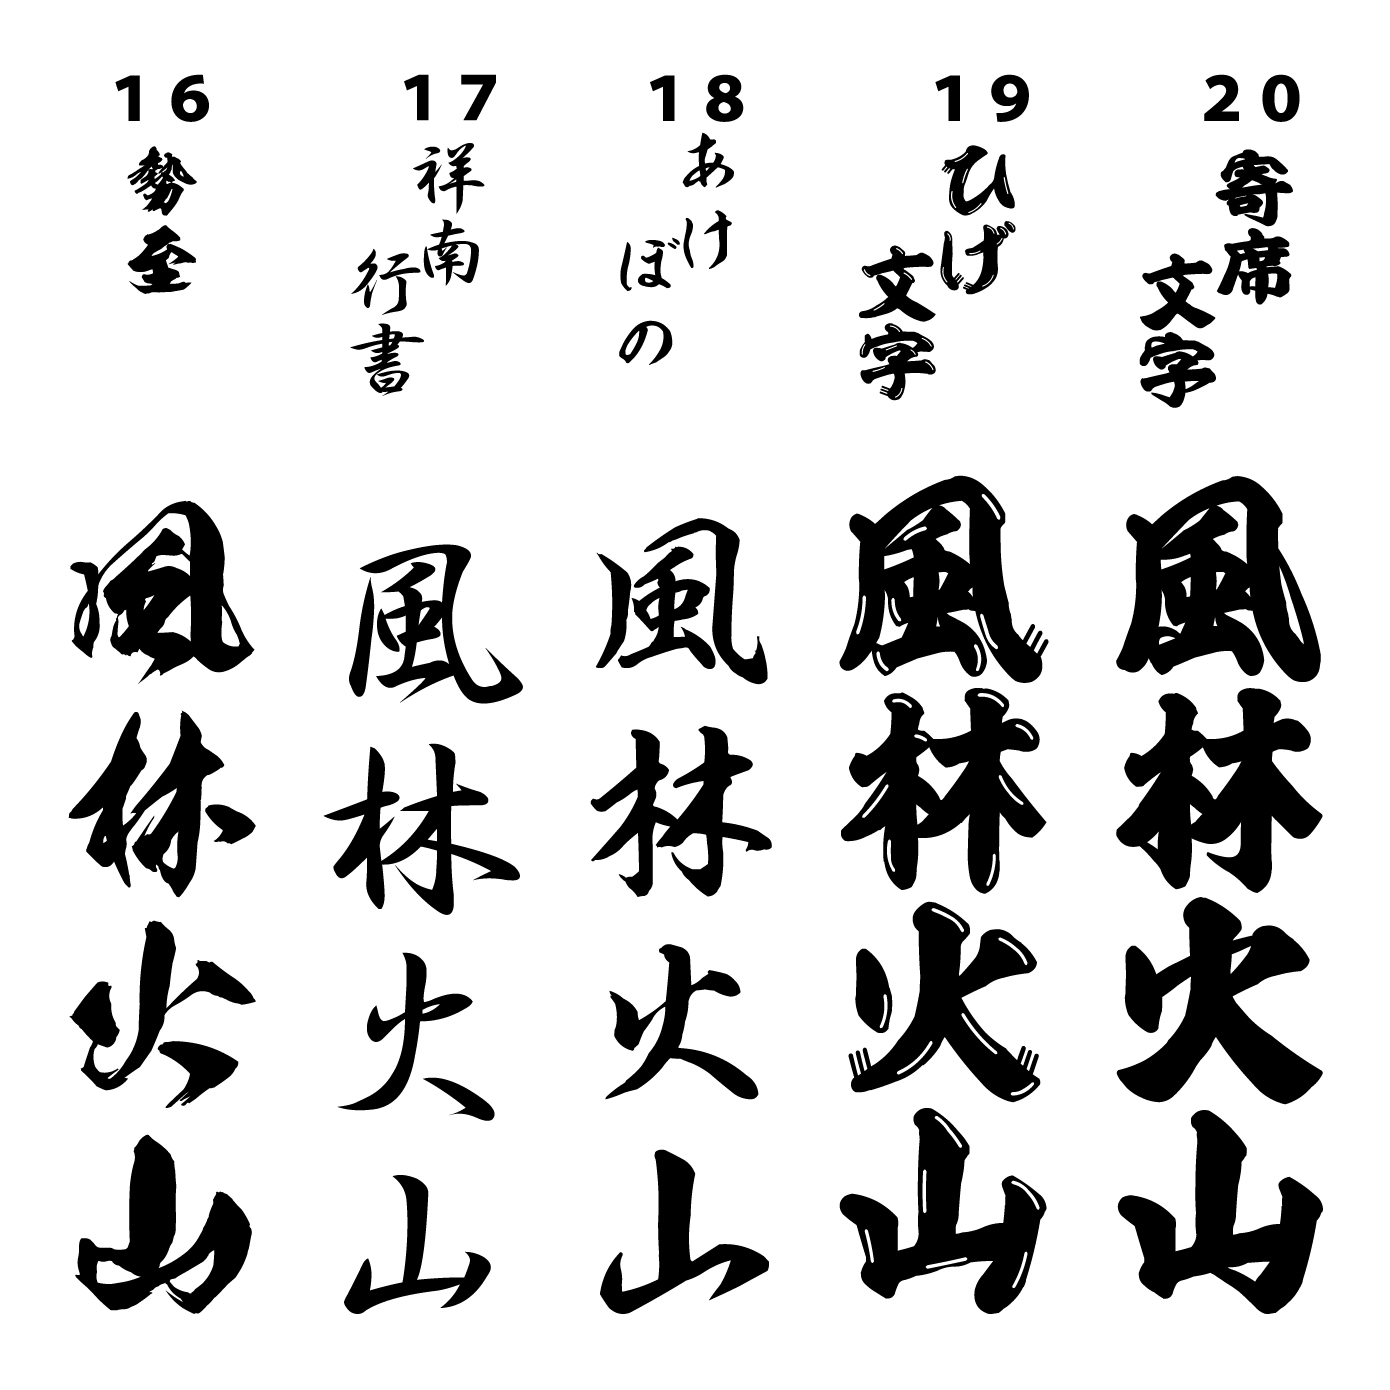 16
勢至
風林火山
17
祥南
行書
風林火山
18
あけ
ぼの
風林火山
19
ひげ
文字
風林火山
20
寄席
文字
風林火山